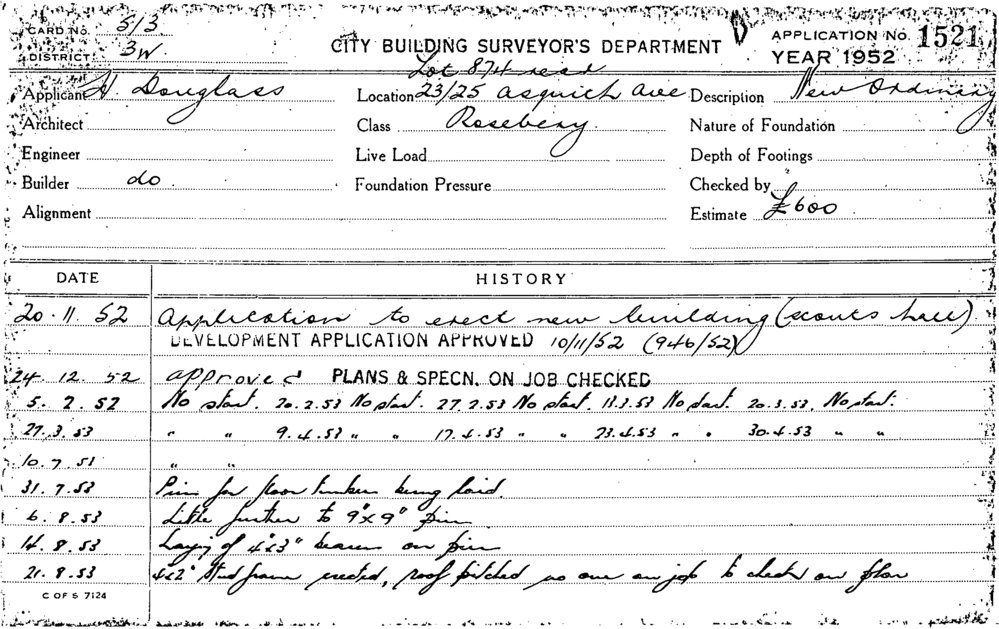 CARD No. 5/3
DISTRICT 3W
CITY BUILDING SURVEYOR'S DEPARTMENT
APPLICATION No. 1521
YEAR 1952
Lot 874 read
Applicant H. Douglass Location 23/25 Asquith Ave Description New Ordinary
Architect Class Rosebery Nature of Foundation
Engineer Live Load Depth of Footings
Builder do Foundation Pressure Checked by
Alignment Estimate £600
DATE HISTORY
20.11.52 Application to erect new building (scouts hall)
DEVELOPMENT APPLICATION APPROVED 10/11/52 (946/52)
24.12.52 approved PLANS & SPECN. ON JOB CHECKED
5.2.52 No start. 20.2.53 No start. 27.2.53 No start. 13.3.53 No start. 20.3.53. No start.
27.3.53 " " 9.4.53 " " 17.4.53 " " 23.4.53 " " 30.4.53 " "
10.7.51 " "
31.7.53 Piers for floor timbers being laid.
6.8.53 Little further to 9"x9" piers
14.8.53 Laying of 4"x3" bearers on piers
21.8.53 4x2" stud frame erected, roof pitched no one on job to check on plan
C OF S 7124